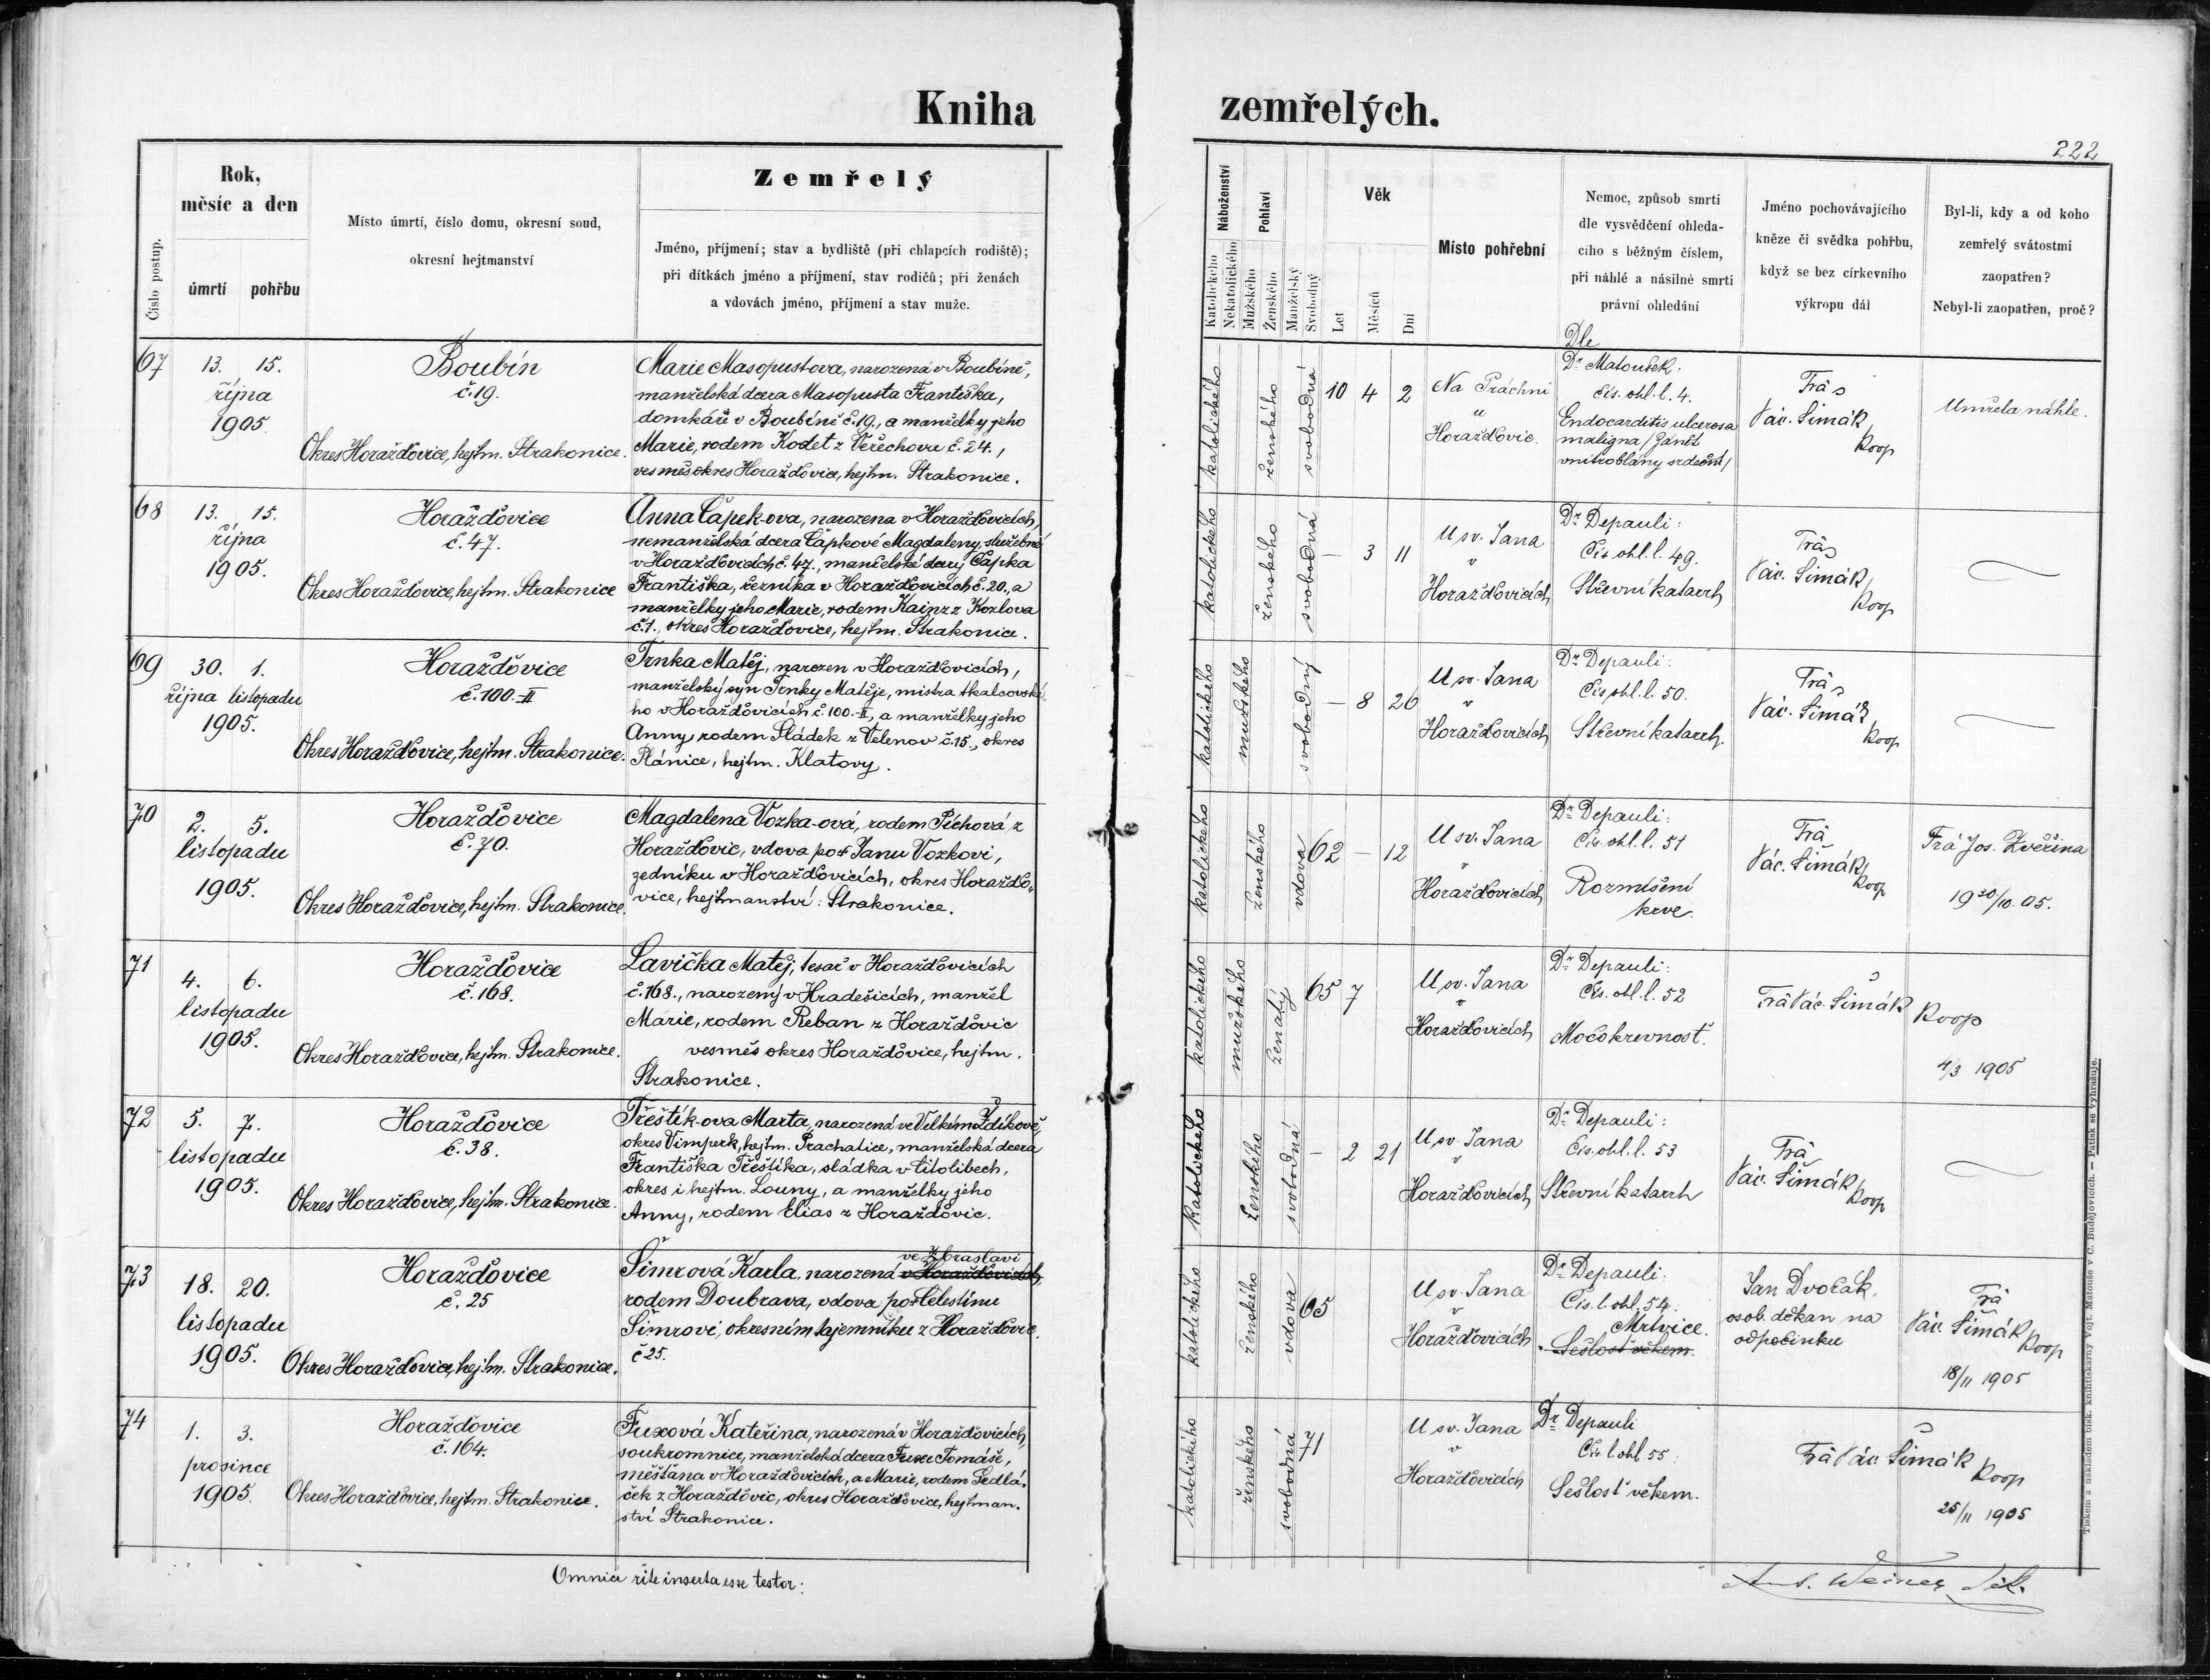 Kniha
zemřelých.
222
Číslo postup.
Rok,
měsíc a den
úmrtí pohřbu
Místo úmrtí, číslo domu, okresní soud,
okresní hejtmanství
Zemřelý
Jméno, příjmení; stav a bydliště (při chlapcích rodiště);
při dítkách jméno a příjmení, stav rodičů; při ženách
a vdovách jméno, příjmení a stav muže.
Náboženství
Katolického
Nekatolického
Pohlaví
Mužského
Ženského
Manželský
Svobodný
Věk
Let
Měsíců
Dní
Místo pohřební
Nemoc, způsob smrti
dle vysvědčení ohleda-
cího s běžným číslem,
při náhlé a násilné smrti
právní ohledání
Jméno pochovávajícího
kněze či svědka pohřbu,
když se bez církevního
výkropu dál
Byl-li, kdy a od koho
zemřelý svátostmi
zaopatřen?
Nebyl-li zaopatřen, proč?
67
13. 15.
října
1905
Boubín
č. 19.
Okres Horažďovice, hejtm. Strakonice.
Marie Masopustova, narozená v Boubíně,
manželská dcera Masopusta Františka,
domkáře v Boubíně č. 19., a manželky jeho
Marie, rodem Kodet z Veřechova č. 24.,
vesměs okres Horažďovice, hejtm. Strakonice.
katolického
ženského
svobodná
10 4 2
Na Práchni
u
Horažďovic.
Dle
Dr Matoušek:
Čís. ohl. l. 4.
Endocarditis ulcerosa
maligna / Zánět
vnitroblány srdeční /
Vác. Šimák
Koop
Umřela náhle.
68
13. 15.
října
1905.
Horažďovice
č. 47.
Okres Horažďovice, hejtm. Strakonice
Anna Čapek-ova, narozena v Horažďovicích,
nemanželská dcera Čápkové Magdaleny, služebné
v Horažďovicích č. 47., manželské dcery Čapka
Františka, řezníka v Horažďovicích č. 20., a
manželky jeho Marie, rodem Kainz z Kozlova
č. 1., okres Horažďovice, hejtm. Strakonice.
katolického
ženského
svobodná
— 3 11
U sv. Jana
v
Horažďovicích
Dr Depauli:
Čís. ohl. l. 49.
Střevní katarrh
Vác. Šimák
Koop
69
30. 1.
října listopadu
1905.
Horažďovice
č. 100.-II
Okres Horažďovice, hejtm. Strakonice.
Trnka Matěj, narozen v Horažďovicích,
manželský syn Trnky Matěje, mistra tkalcovské-
ho v Horažďovicích č. 100.-II, a manželky jeho
Anny, rodem Sládek z Velenov č. 15., okres
Plánice, hejtm. Klatovy.
katolického
mužského
svobodný
— 8 26
U sv. Jana
v
Horažďovicích
Dr Depauli:
Čís. ohl. l. 50.
Střevní katarrh.
Vác. Šimák
Koop
70
2. 5.
listopadu
1905.
Horažďovice
č. 70.
Okres Horažďovice, hejtm. Strakonice.
Magdalena Vozka-ová, rodem Píchová z
Horažďovic, vdova po † Janu Vozkovi,
zedníku v Horažďovicích, okres Horažďo-
vice, hejtmanství: Strakonice.
katolického
ženského
vdova
62 — 12
U sv. Jana
v
Horažďovicích
Dr Depauli:
Čís. ohl. l. 51
Rozmíšení
krve.
Vác. Šimák
Koop
Jos. Zvěřina
19 30/10. 05.
71
4. 6.
listopadu
1905.
Horažďovice
č. 168.
Okres Horažďovice, hejtm. Strakonice.
Lavička Matěj, tesař v Horažďovicích
č. 168., narozený v Hradešicích, manžel
Marie, rodem Reban z Horažďovic
vesměs okres Horažďovice, hejtm.
Strakonice.
katolického
mužského
ženatý
65 7
U sv. Jana
v
Horažďovicích
Dr Depauli:
Čís. ohl. l. 52
Močokrevnosť.
Vác. Šimák Koop
4/3 1905
72
5. 7.
listopadu
1905.
Horažďovice
č. 38.
Okres Horažďovice, hejtm. Strakonice.
Třeštík-ova Marta, narozená ve Velkém Zdíkově,
okres Vimperk, hejtm. Prachatice, manželská dcera
Františka Třeštíka, sládka v Citolibech,
okres i hejtm. Louny, a manželky jeho
Anny, rodem Elias z Horažďovic.
katolického
ženského
svobodná
— 2 21
U sv. Jana
v
Horažďovicích
Dr Depauli:
Čís. ohl. l. 53
Střevní katarrh
Vác. Šimák
Koop
73
18. 20.
listopadu
1905.
Horažďovice
č. 25
Okres Horažďovice, hejtm. Strakonice.
ve Zbraslavi
Šimrová Karla, narozená v Horažďovicích,
rodem Doubrava, vdova po † Celestinu
Šimrovi, okresním tajemníku z Horažďovic.
č 25.
katolického
ženského
vdova
65
U sv. Jana
v
Horažďovicích
Dr Depauli:
Čís. l. ohl. 54.
Mrtvice.
Sešlost věkem.
Jan Dvořák,
osob. děkan na
odpočinku
Vác. Šimák
Koop
18/11 1905
74
1. 3.
prosince
1905.
Horažďovice
č. 164.
Okres Horažďovice, hejtm. Strakonice.
Fuxová Kateřina, narozená v Horažďovicích,
soukromnice, manželská dcera Fuxe Tomáše,
měšťana v Horažďovicích, a Marie, rodem Sedlá-
ček z Horažďovic, okres Horažďovice, hejtman-
ství Strakonice.
katolického
ženského
svobodná
71
U sv. Jana
v
Horažďovicích
Dr Depauli
Čís. l. ohl. 55.
Sešlosť věkem.
Vác. Šimák
Koop
25/11 1905
Omnia rite inserta esse testor:
Tiskem a nákladem bisk. knihtiskárny Vojt. Matouše v Č. Budějovicích. — Patisk se vyhražuje.